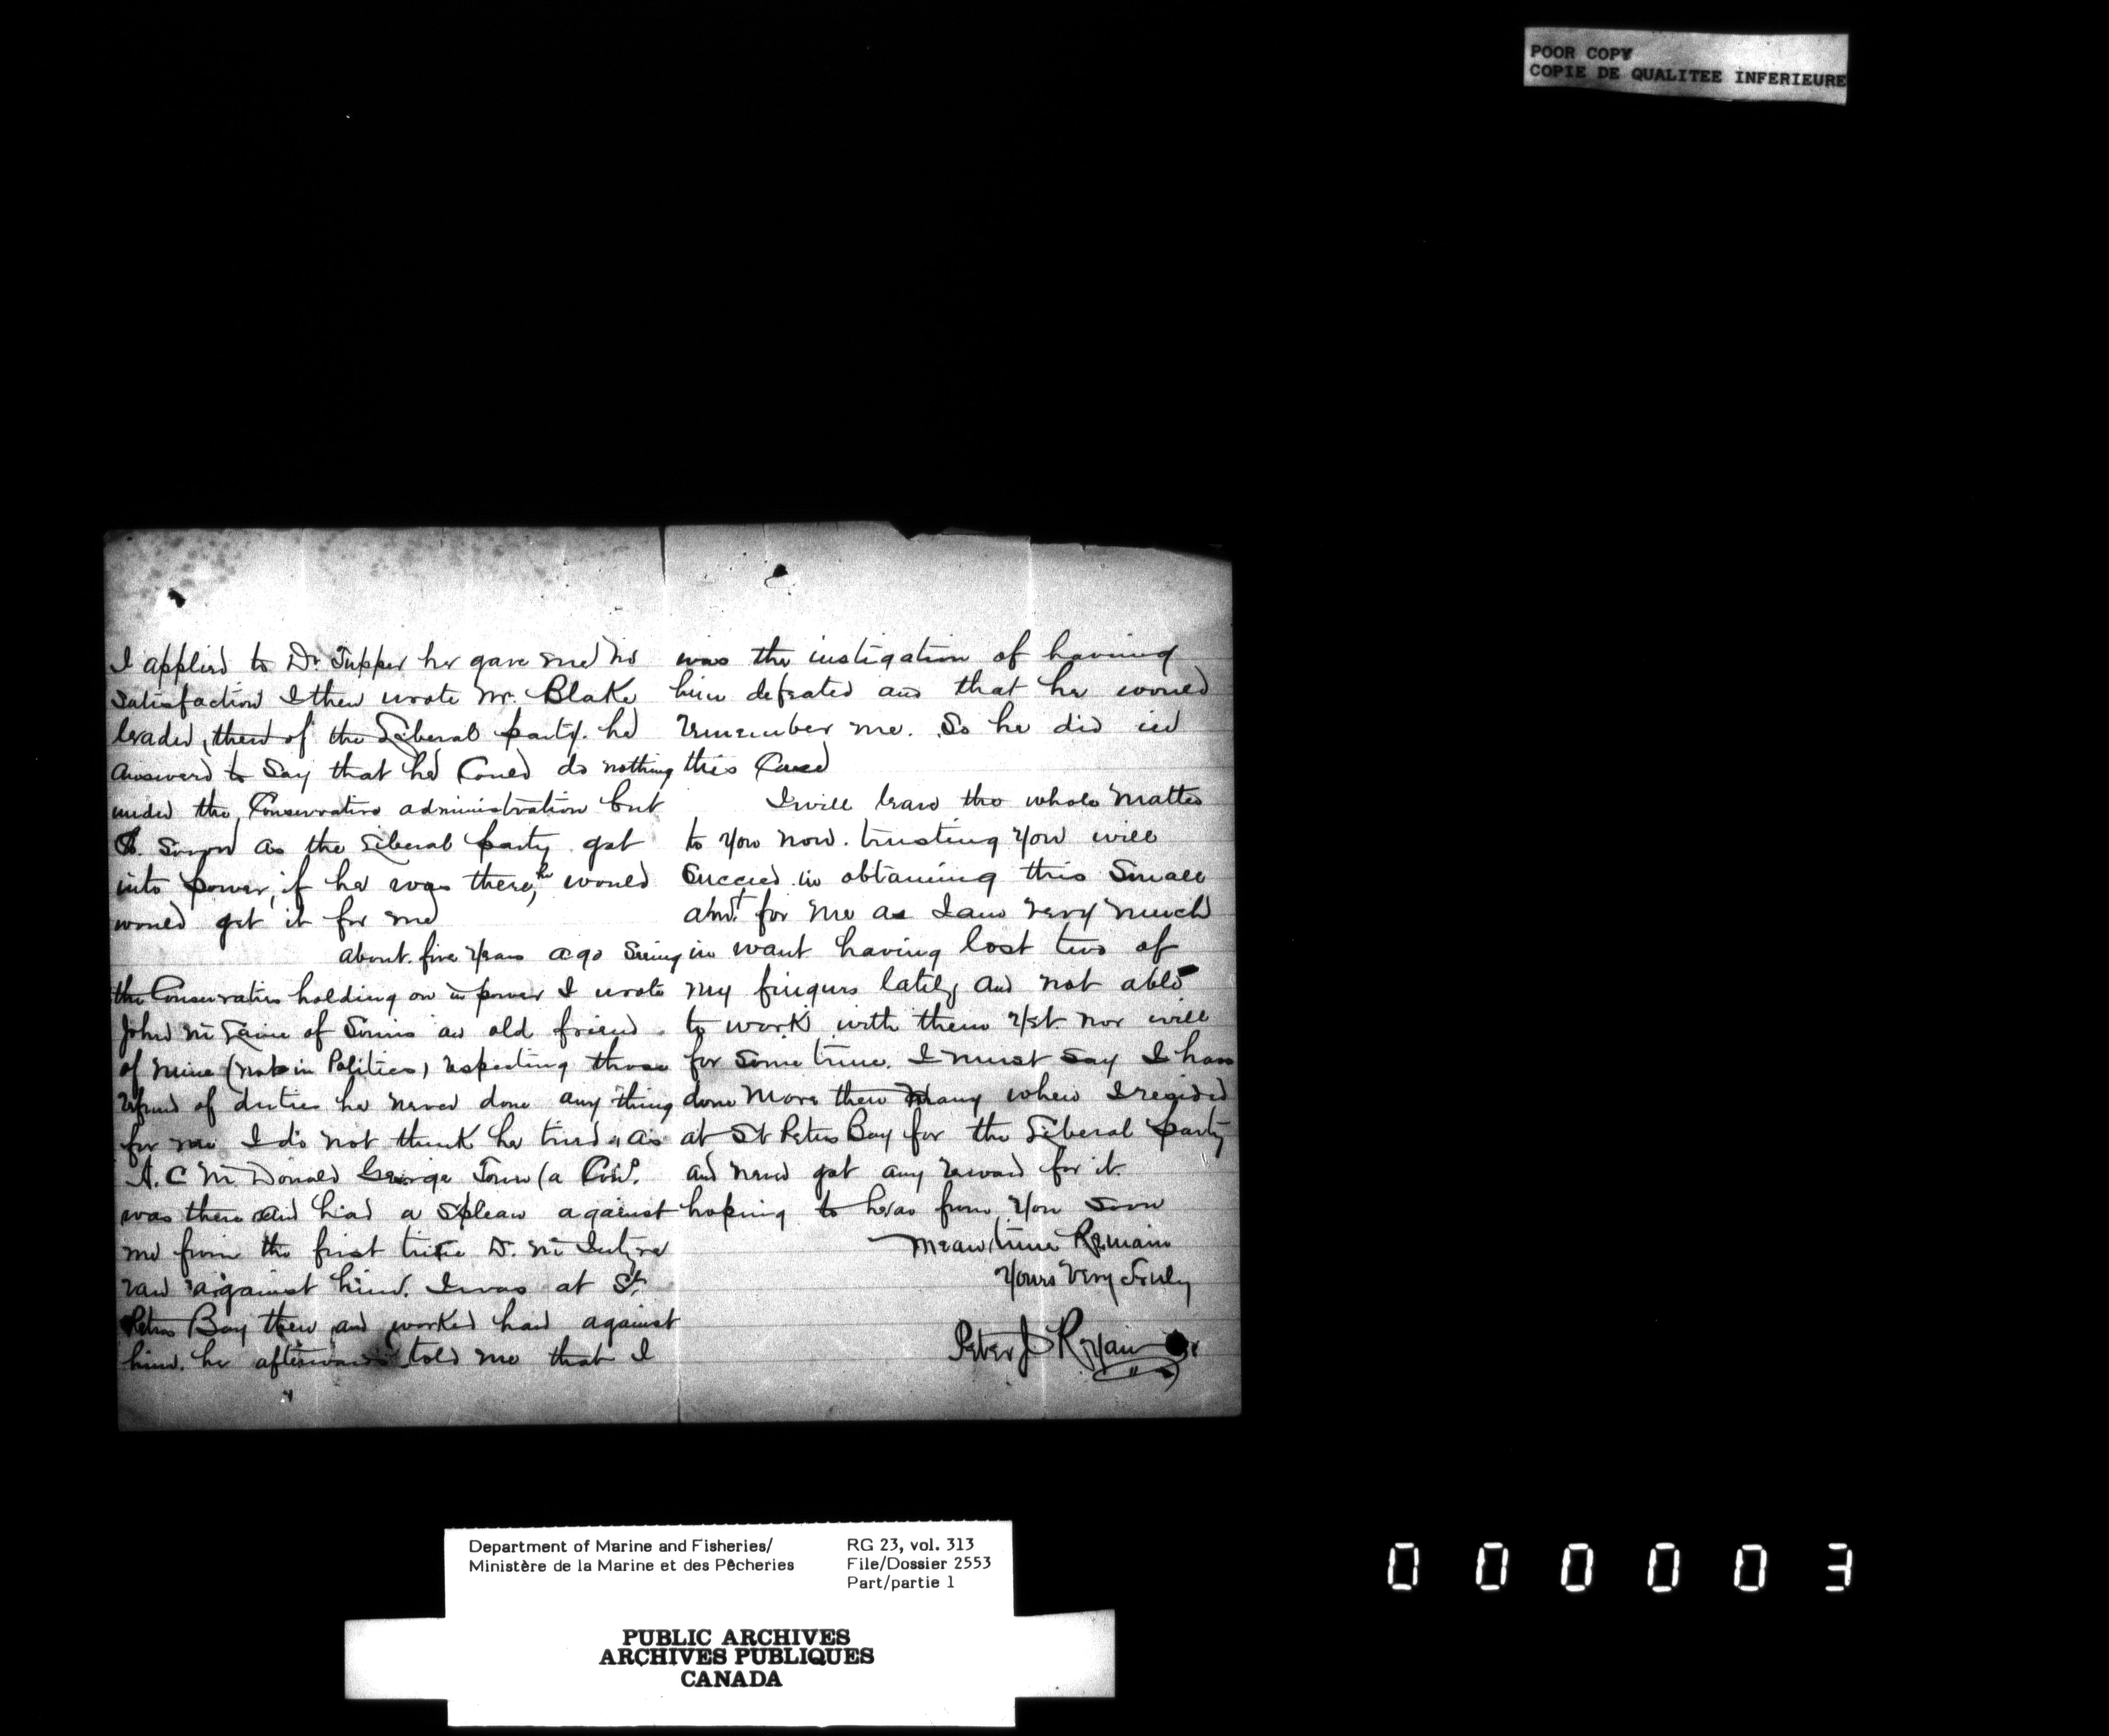 POOR COPY
COPIE DE QUALITEE INFERIEURE
I applied to Dr. Tupper he gave me no
satisfaction I then wrote Mr. Blake
leader, then of the Liberal party. he
answered to say that he could do nothing
under the Conservative administration but
as soon as the Liberal party got
into power, if he was there, he would
would get it for me
about five years ago seeing
the Conservatives holding on in power I wrote
John McLaine of Souris an old friend
of mine (not in Politics) respecting those
refund of duties he never done any thing
for me I do not think he tried, as
A. C McDonald George Town (a Con.
was there and had a Spleen against
me from the first time D. McIntyre
ran against him. I was at St.
Peters Bay then and worked hard against
him. he afterwards told me that I
was the instigation of having
him defeated and that he would
remember me. So he did in
this Case
I will leave the whole matter
to you now. trusting you will
succeed in obtaining this Small
amt. for me as I am very much
in want having lost two of
my fingers lately and not able
to work with them yet nor will
for some time. I must say I have
done more then many when I resided
at St Peters Bay for the Liberal party
and never got any reward for it.
hoping to hear from you soon
Meantime Remain
Yours Very Truly
Peter J Ryan
Department of Marine and Fisheries/
Ministère de la Marine et des Pêcheries
RG 23, vol. 313
File/Dossier 2553
Part/partie 1
PUBLIC ARCHIVES
ARCHIVES PUBLIQUES
CANADA
000003